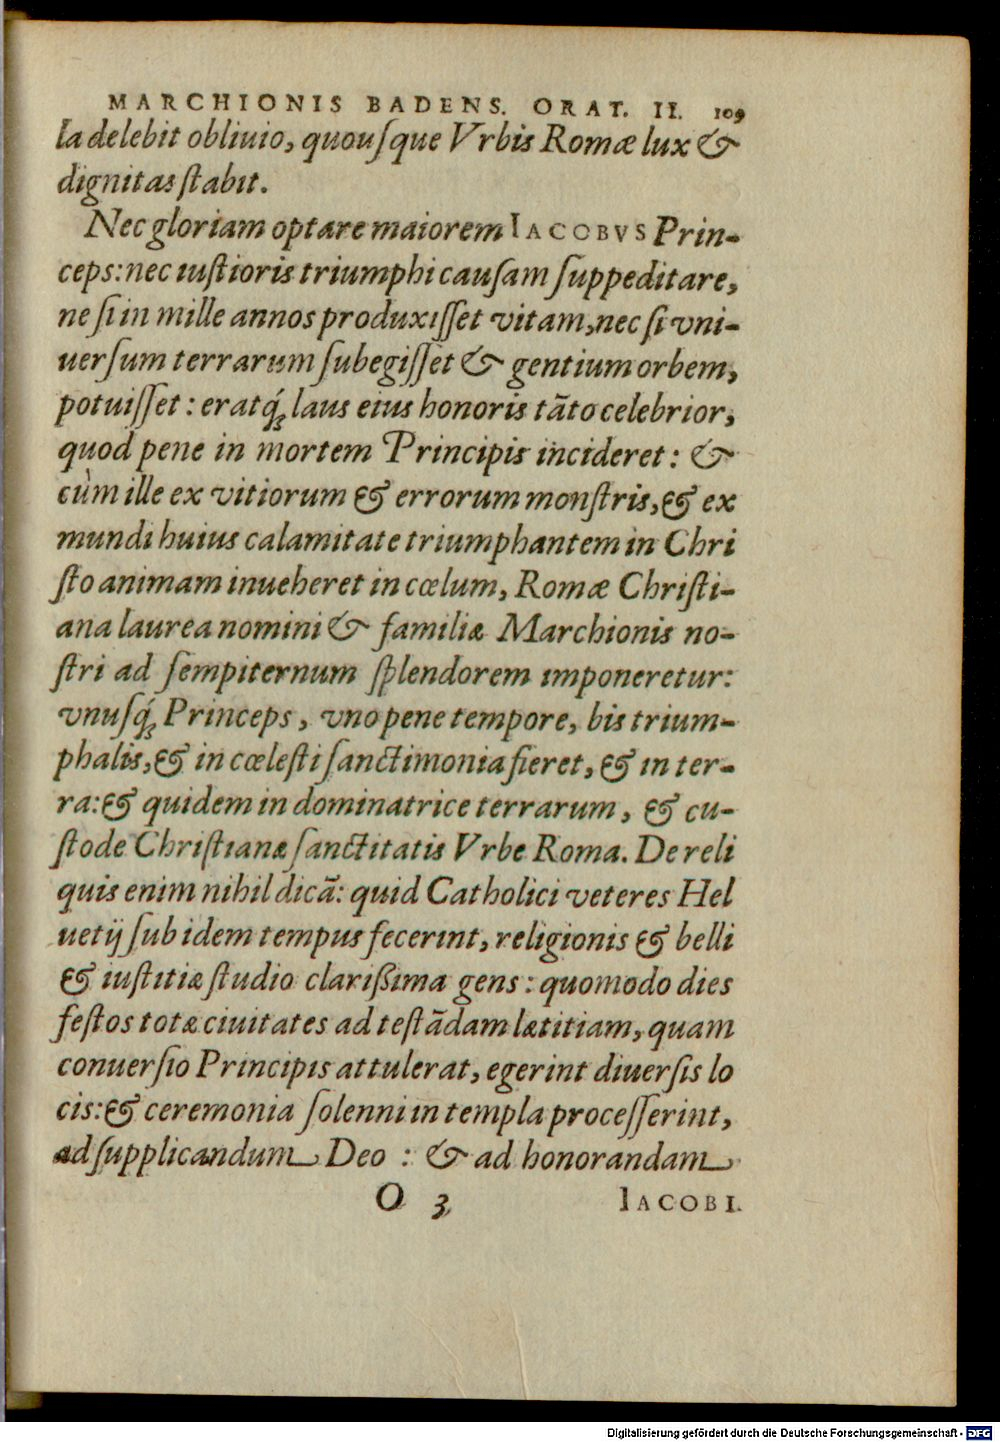 MARCHIONIS BADENS. ORAT. II. 109
la delebit obliuio, quouſque Vrbis Romæ lux &
dignitas ſtabit.
Nec gloriam optare maiorem IACOBVS Prin-
ceps: nec iuſtioris triumphi cauſam ſuppeditare,
ne ſi in mille annos produxiſſet vitam, nec ſi vni-
uerſum terrarum ſubegiſſet & gentium orbem,
potuiſſet: eratq́; laus eius honoris tāto celebrior,
quod pene in mortem Principis incideret: &
cùm ille ex vitiorum & errorum monſtris, & ex
mundi huius calamitate triumphantem in Chri
ſto animam inueheret in cœlum, Romæ Chriſti-
ana laurea nomini & familiæ Marchionis no-
ſtri ad ſempiternum ſplendorem imponeretur:
vnuſq́; Princeps, vno pene tempore, bis trium-
phalis, & in cœleſti ſanctimonia fieret, & in ter-
ra: & quidem in dominatrice terrarum, & cu-
ſtode Chriſtianæ ſanctitatis Vrbe Roma. De reli
quis enim nihil dicā: quid Catholici veteres Hel
uetij ſub idem tempus fecerint, religionis & belli
& iuſtitiæ ſtudio clarißima gens: quomodo dies
feſtos totæ ciuitates ad teſtādam lætitiam, quam
conuerſio Principis attulerat, egerint diuerſis lo
cis: & ceremonia ſolenni in templa proceſſerint,
ad ſupplicandum Deo : & ad honorandam
O 3 IACOBI.
Digitalisierung gefördert durch die Deutsche Forschungsgemeinschaft - DFG